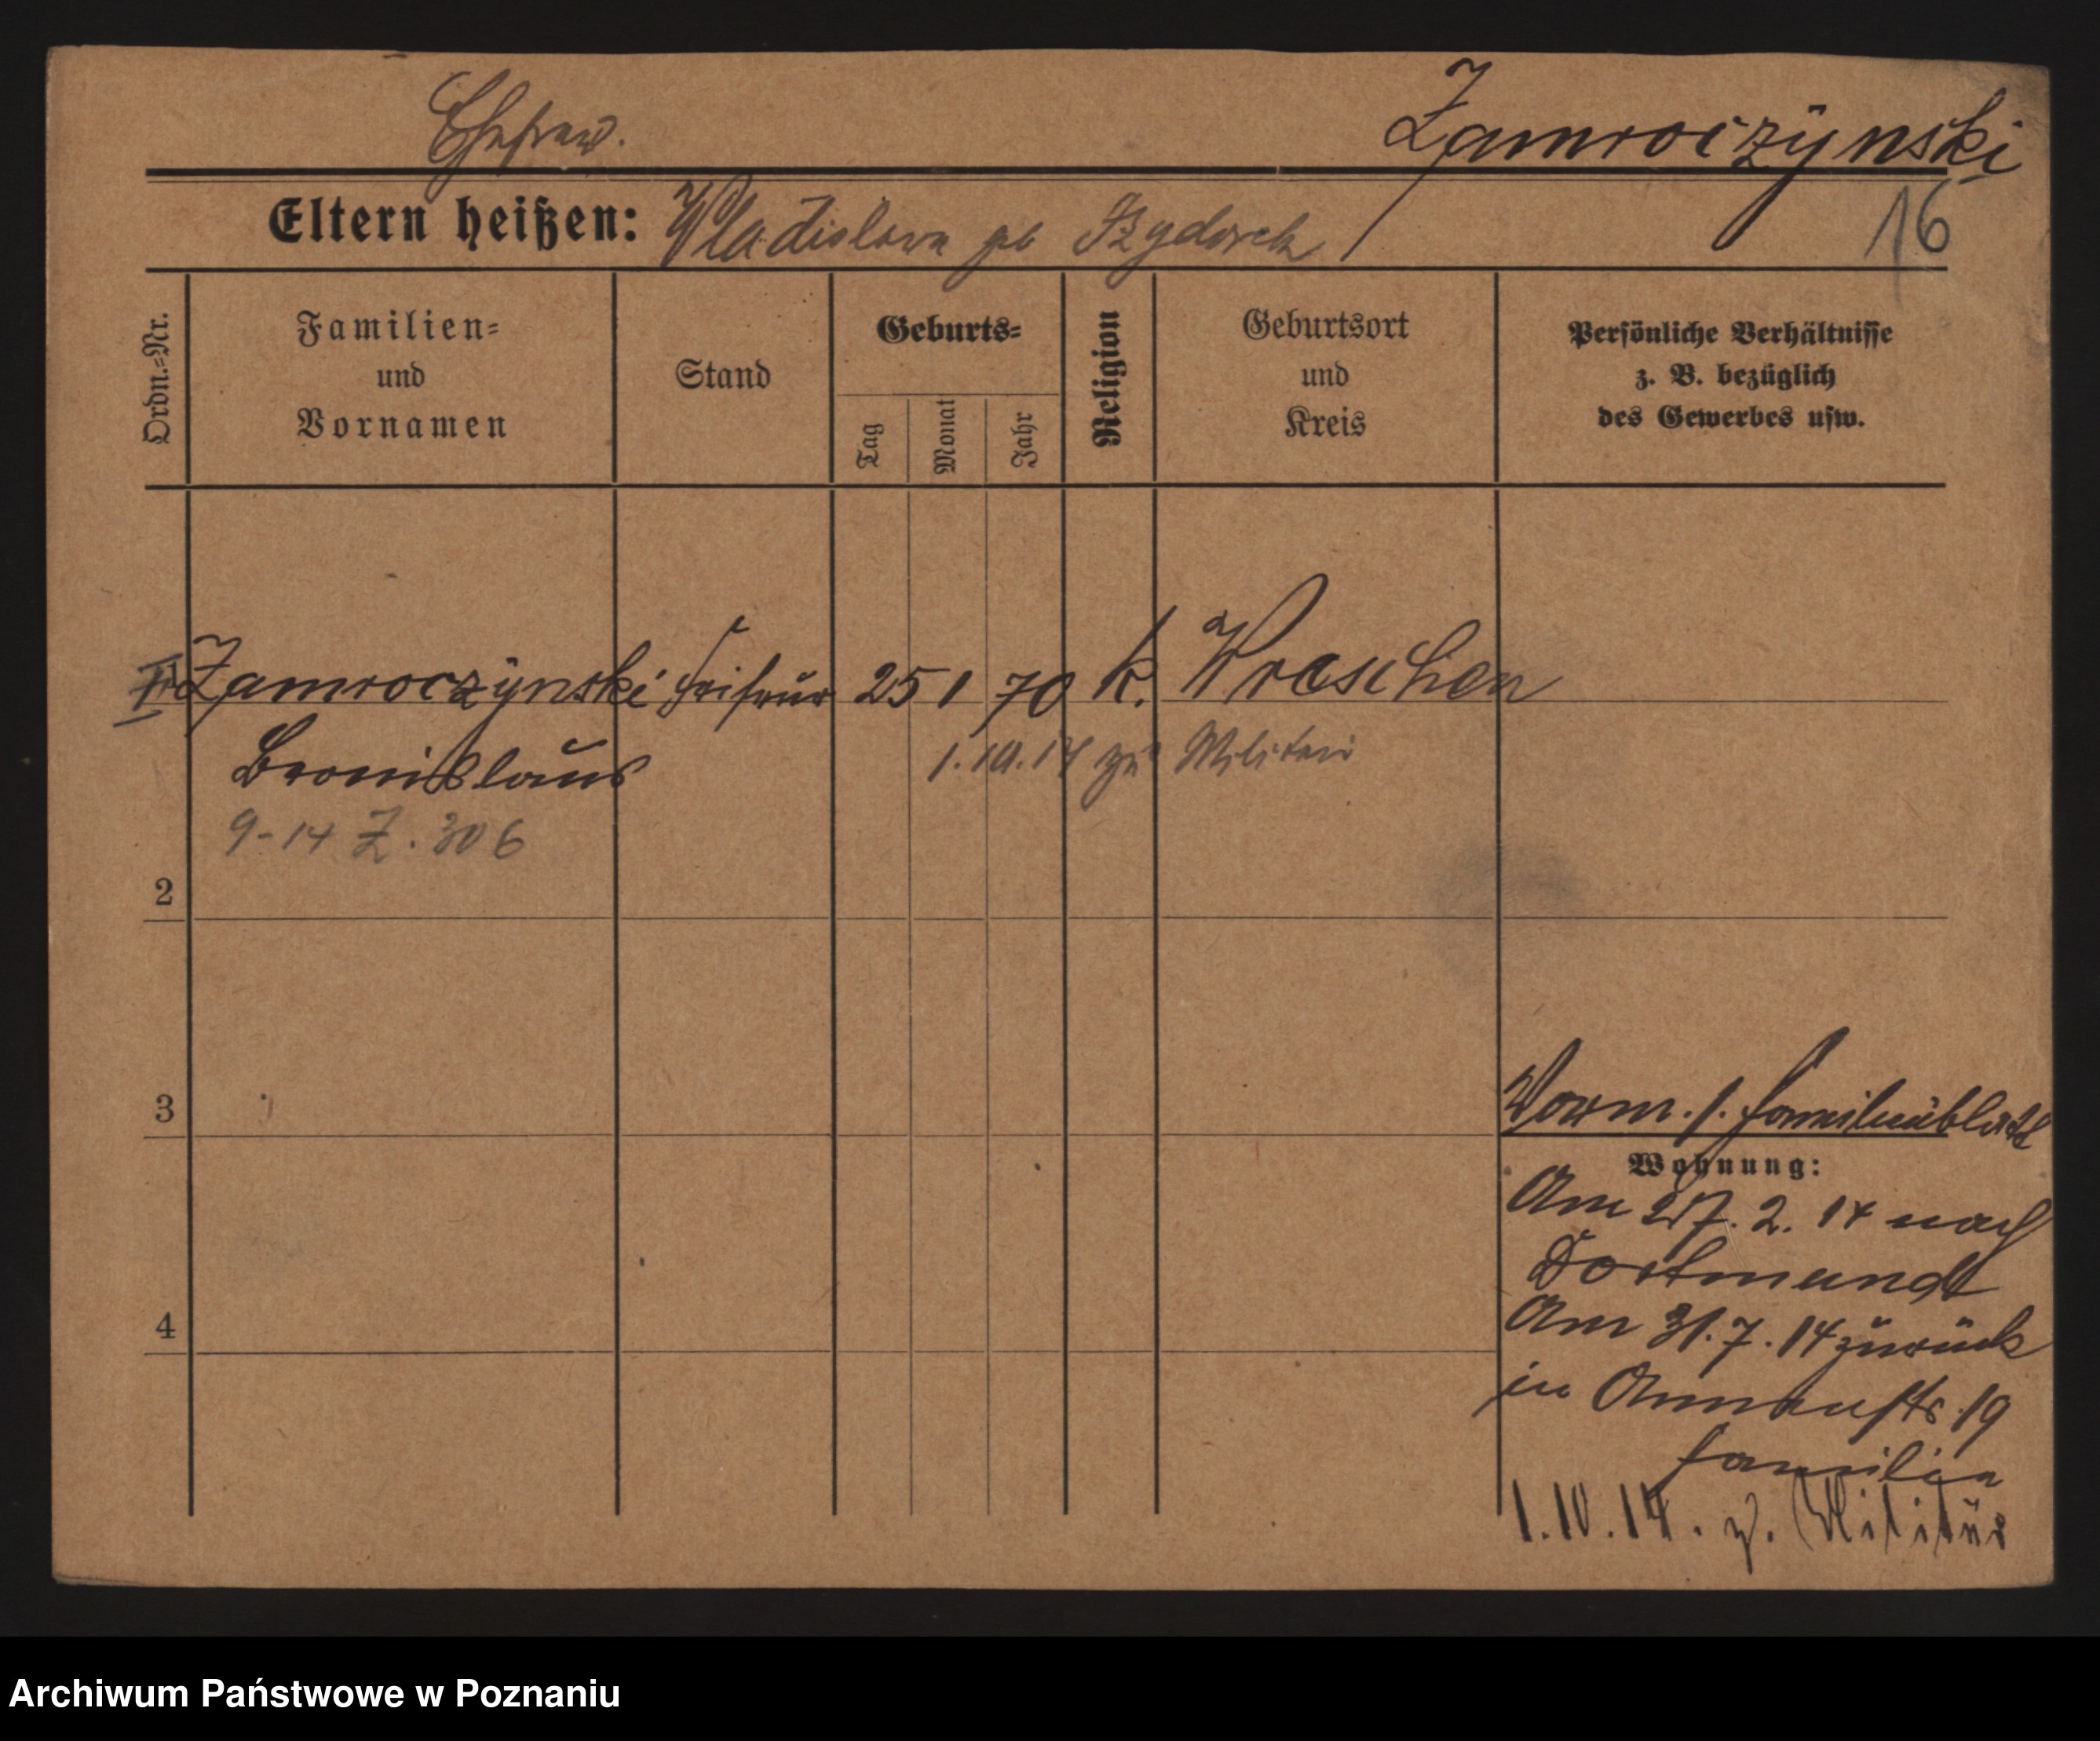 Ehefrau.
Zamroczÿnski
Eltern heißen: Wladislava gb Izydorek
16
Ordn.-Nr.
Familien-
und
Vornamen
Stand
Geburts-
Tag
Monat
Jahr
Religion
Geburtsort
und
Kreis
Persönliche Verhältnisse
z. B. bezüglich
des Gewerbes usw.
Zamroczÿnski Friseur 25 1 70 k. Wreschen
Bronislaus
1.10.14 zu Militair
9-14 Z. 306
2
3
4
Verm. s. Familienblatt
Wohnung:
Am 27. 2. 14 nach
Dortmund
Am 31. 7. 14 zurück
in 19
Familie
1.10.14. z. Militär
Archiwum Państwowe w Poznaniu